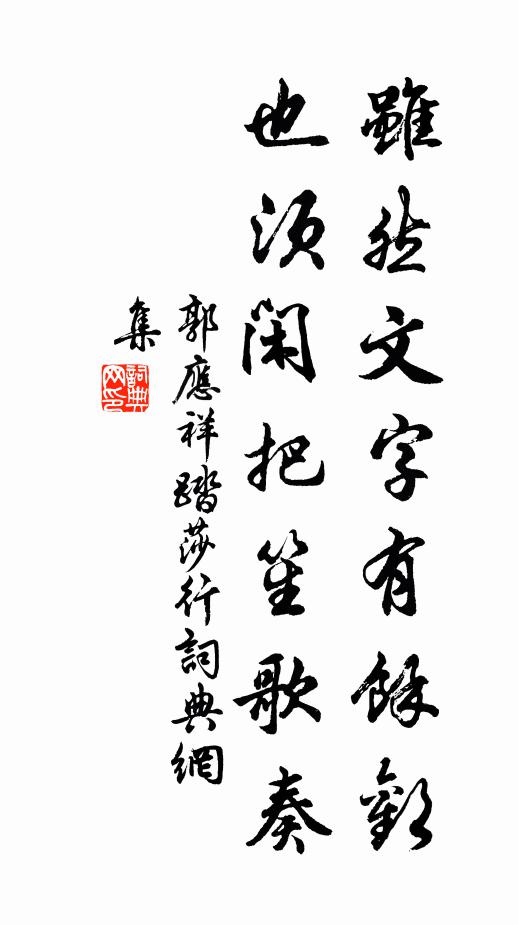 雖然文字有餘歡
也須閑把笙歌奏
郭應祥踏莎行詞典網
集
詞典網印